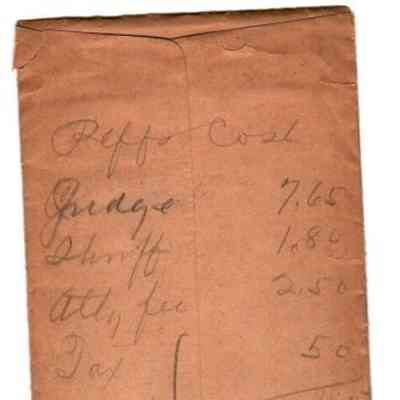 Peffs Cost
Judge 7.65
Shriff 1.80
Atty fee 2.50
Tax 50